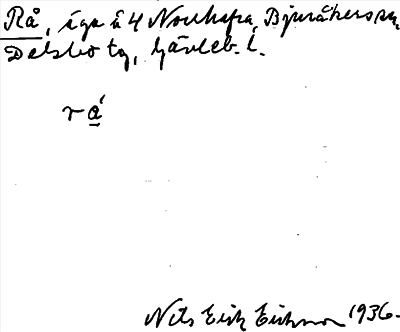 Rå, äga å 4 Norrhafra, Bjuråkers sn,
Delsbo tg, Gävleb. l.
r á̲
Nils Erik 1936.